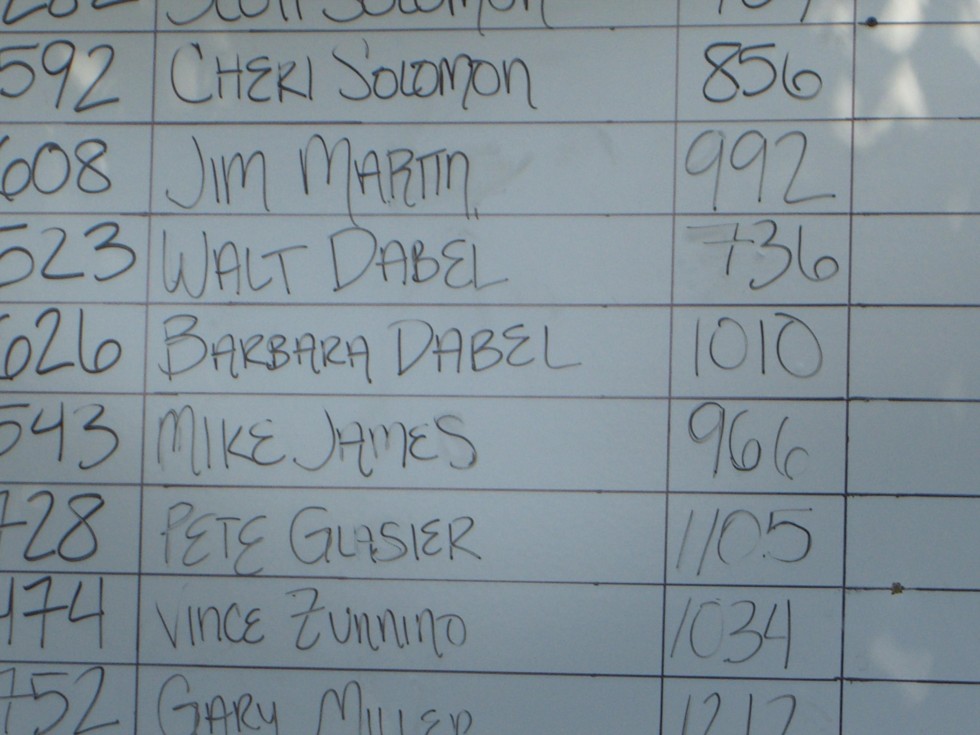 282 SCOTT SOLOMON
592 CHERI SOLOMON 856
608 JIM MARTIN 992
523 WALT DABEL 736
626 BARBARA DABEL 1010
543 MIKE JAMES 966
728 PETE GLASIER 1105
474 VINCE ZUNNINO 1034
752 GARY MILLER 1212